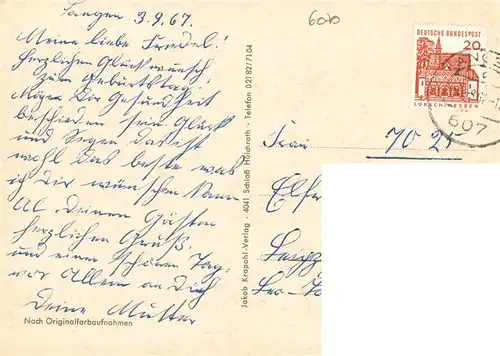 Langen 3.9.67.
Meine liebe Friedel!
Herzlichen Glückwunsch
zum Geburtstag!
Möge Dir Gesundheit
beschieden sein Glück
und Segen das ist
wohl das beste was
ich Dir wünschen kann
Al. Deinen Gästen
herzlichen Gruß.
und einen schönen Tag.
vor Allem an Dich
Deine Mutter
Nach Originalfarbaufnahmen
Jakob Krapohl-Verlag · 4041 Schloß Hülchrath · Telefon 02182/7104
6070
DEUTSCHE BUNDESPOST
20
LORSCH/HESSEN
607
Frau
7025
Elfr
Leipz